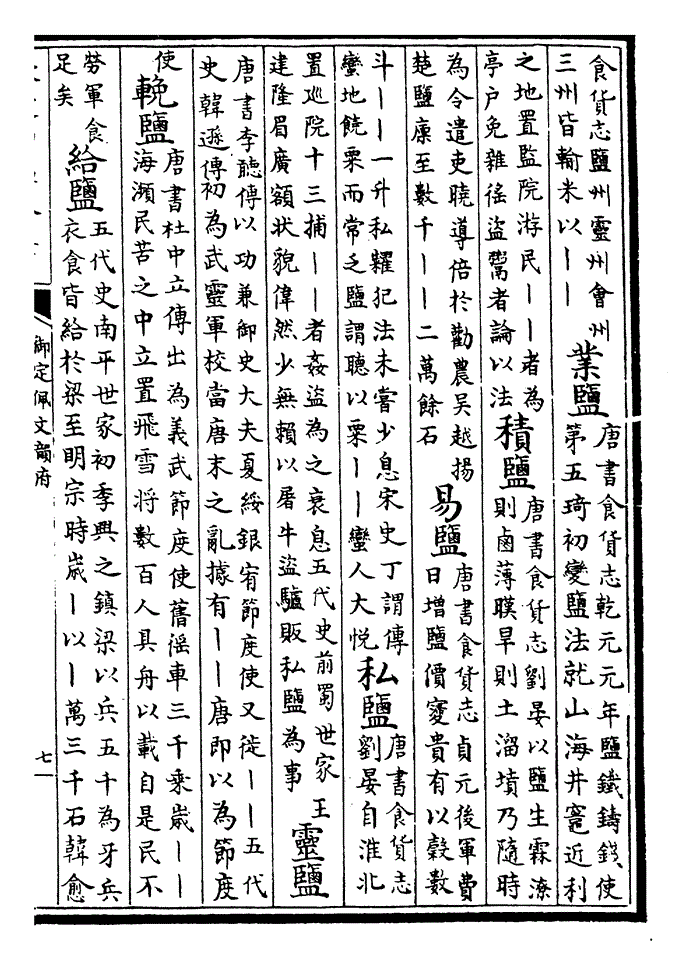 食貨志鹽州靈州會州
三州皆輸米以丨丨
業鹽
唐書食貨志乾元元年鹽鐵鑄錢使
第五琦初變鹽法就山海井竈近利
之地置監院游民丨丨者為
亭户免雜徭盜鬻者論以法
積鹽
唐書食貨志劉晏以鹽生霖潦
則鹵薄暵旱則土溜墳乃隨時
為令遣吏曉導倍於勸農吳越揚
楚鹽廩至數千丨丨二萬餘石
易鹽
唐書食貨志貞元後軍費
日增鹽價寖貴有以穀數
斗丨丨一升私糶犯法未嘗少息宋史丁謂傳
蠻地饒粟而常乏鹽謂聽以粟丨丨蠻人大悦
私鹽
唐書食貨志
劉晏自淮北
置廵院十三捕丨丨者姦盜為之衰息五代史前蜀世家王
建隆眉廣額狀貌偉然少無賴以屠牛盜驢販私鹽為事
靈鹽
唐書李聽傳以功兼御史大夫夏綏銀宥節度使又徙丨丨五代
史韓遜傳初為武靈軍校當唐末之亂據有丨丨唐即以為節度
使
輓鹽
唐書杜中立傳出為義武節度使舊徭車三千乘歲丨丨
海瀕民苦之中立置飛雪将數百人具舟以載自是民不
勞軍食
足矣
給鹽
五代史南平世家初季興之鎮梁以兵五千為牙兵
衣食皆給於梁至明宗時歲丨以丨萬三千石韓愈
御定佩文韻府
七